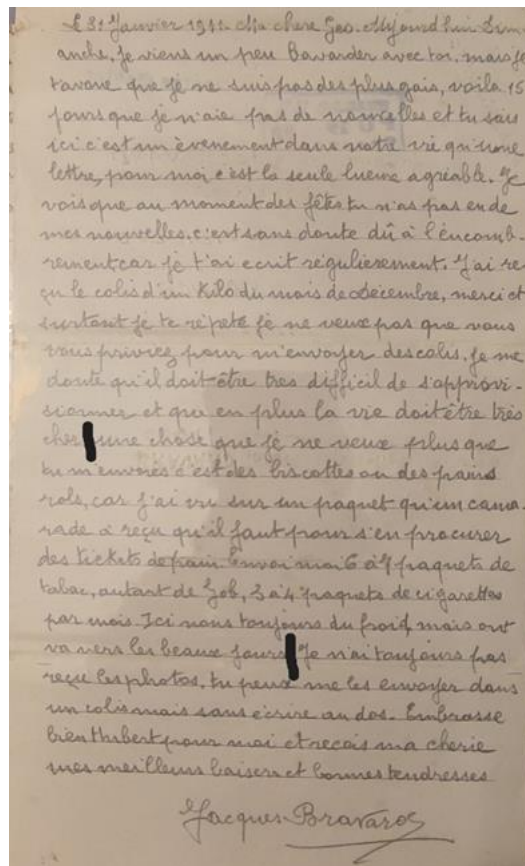 Le 31 Janvier 1941. Ma chere Geo. Aujourd'hui Dim-
anche, je viens un peu Bavarder avec toi, mais je
t'avoue que je ne suis pas des plus gais, voila 15
jours que je n'aie pas de nouvelles et tu sais
ici c'est un èvenement dans notre vie qu'une
lettre, pour moi c'est la seule lueur agréable. Je
vois que au moment des fêtes tu n'as pas eu de
mes nouvelles. c'est sans doute dû à l'encomb-
rement car je t'ai ecrit régulierement. J'ai re-
çu le colis d'un Kilo du mois de Décembre, merci et
surtout je te répete je ne veux pas que vous
vous priviez pour m'envoyer des colis, je me
doute qu'il doit être tres difficil de s'approvi-
sionner et que en plus la vie doit être très
cher une chose que je ne veux plus que
tu m'envoies c'est des biscottes ou des pains
rols, car j'ai vu sur un paquet qu'un cama-
rade a reçu qu'il faut pour s'en procurer
des tickets de pain. Envoi moi 6 à 7 paquets de
tabac, autant de Job, 3 à 4 paquets de cigarettes
par mois. Ici nous toujours du froid, mais ont
va vers les beaux jours Je n'ai toujours pas
reçu les photos, tu peux me les envoyer dans
un colis mais sans écrire au dos. Embrasse
bien pour moi et recois ma cherie
mes meilleurs baisers et bonnes tendresses
Jacques